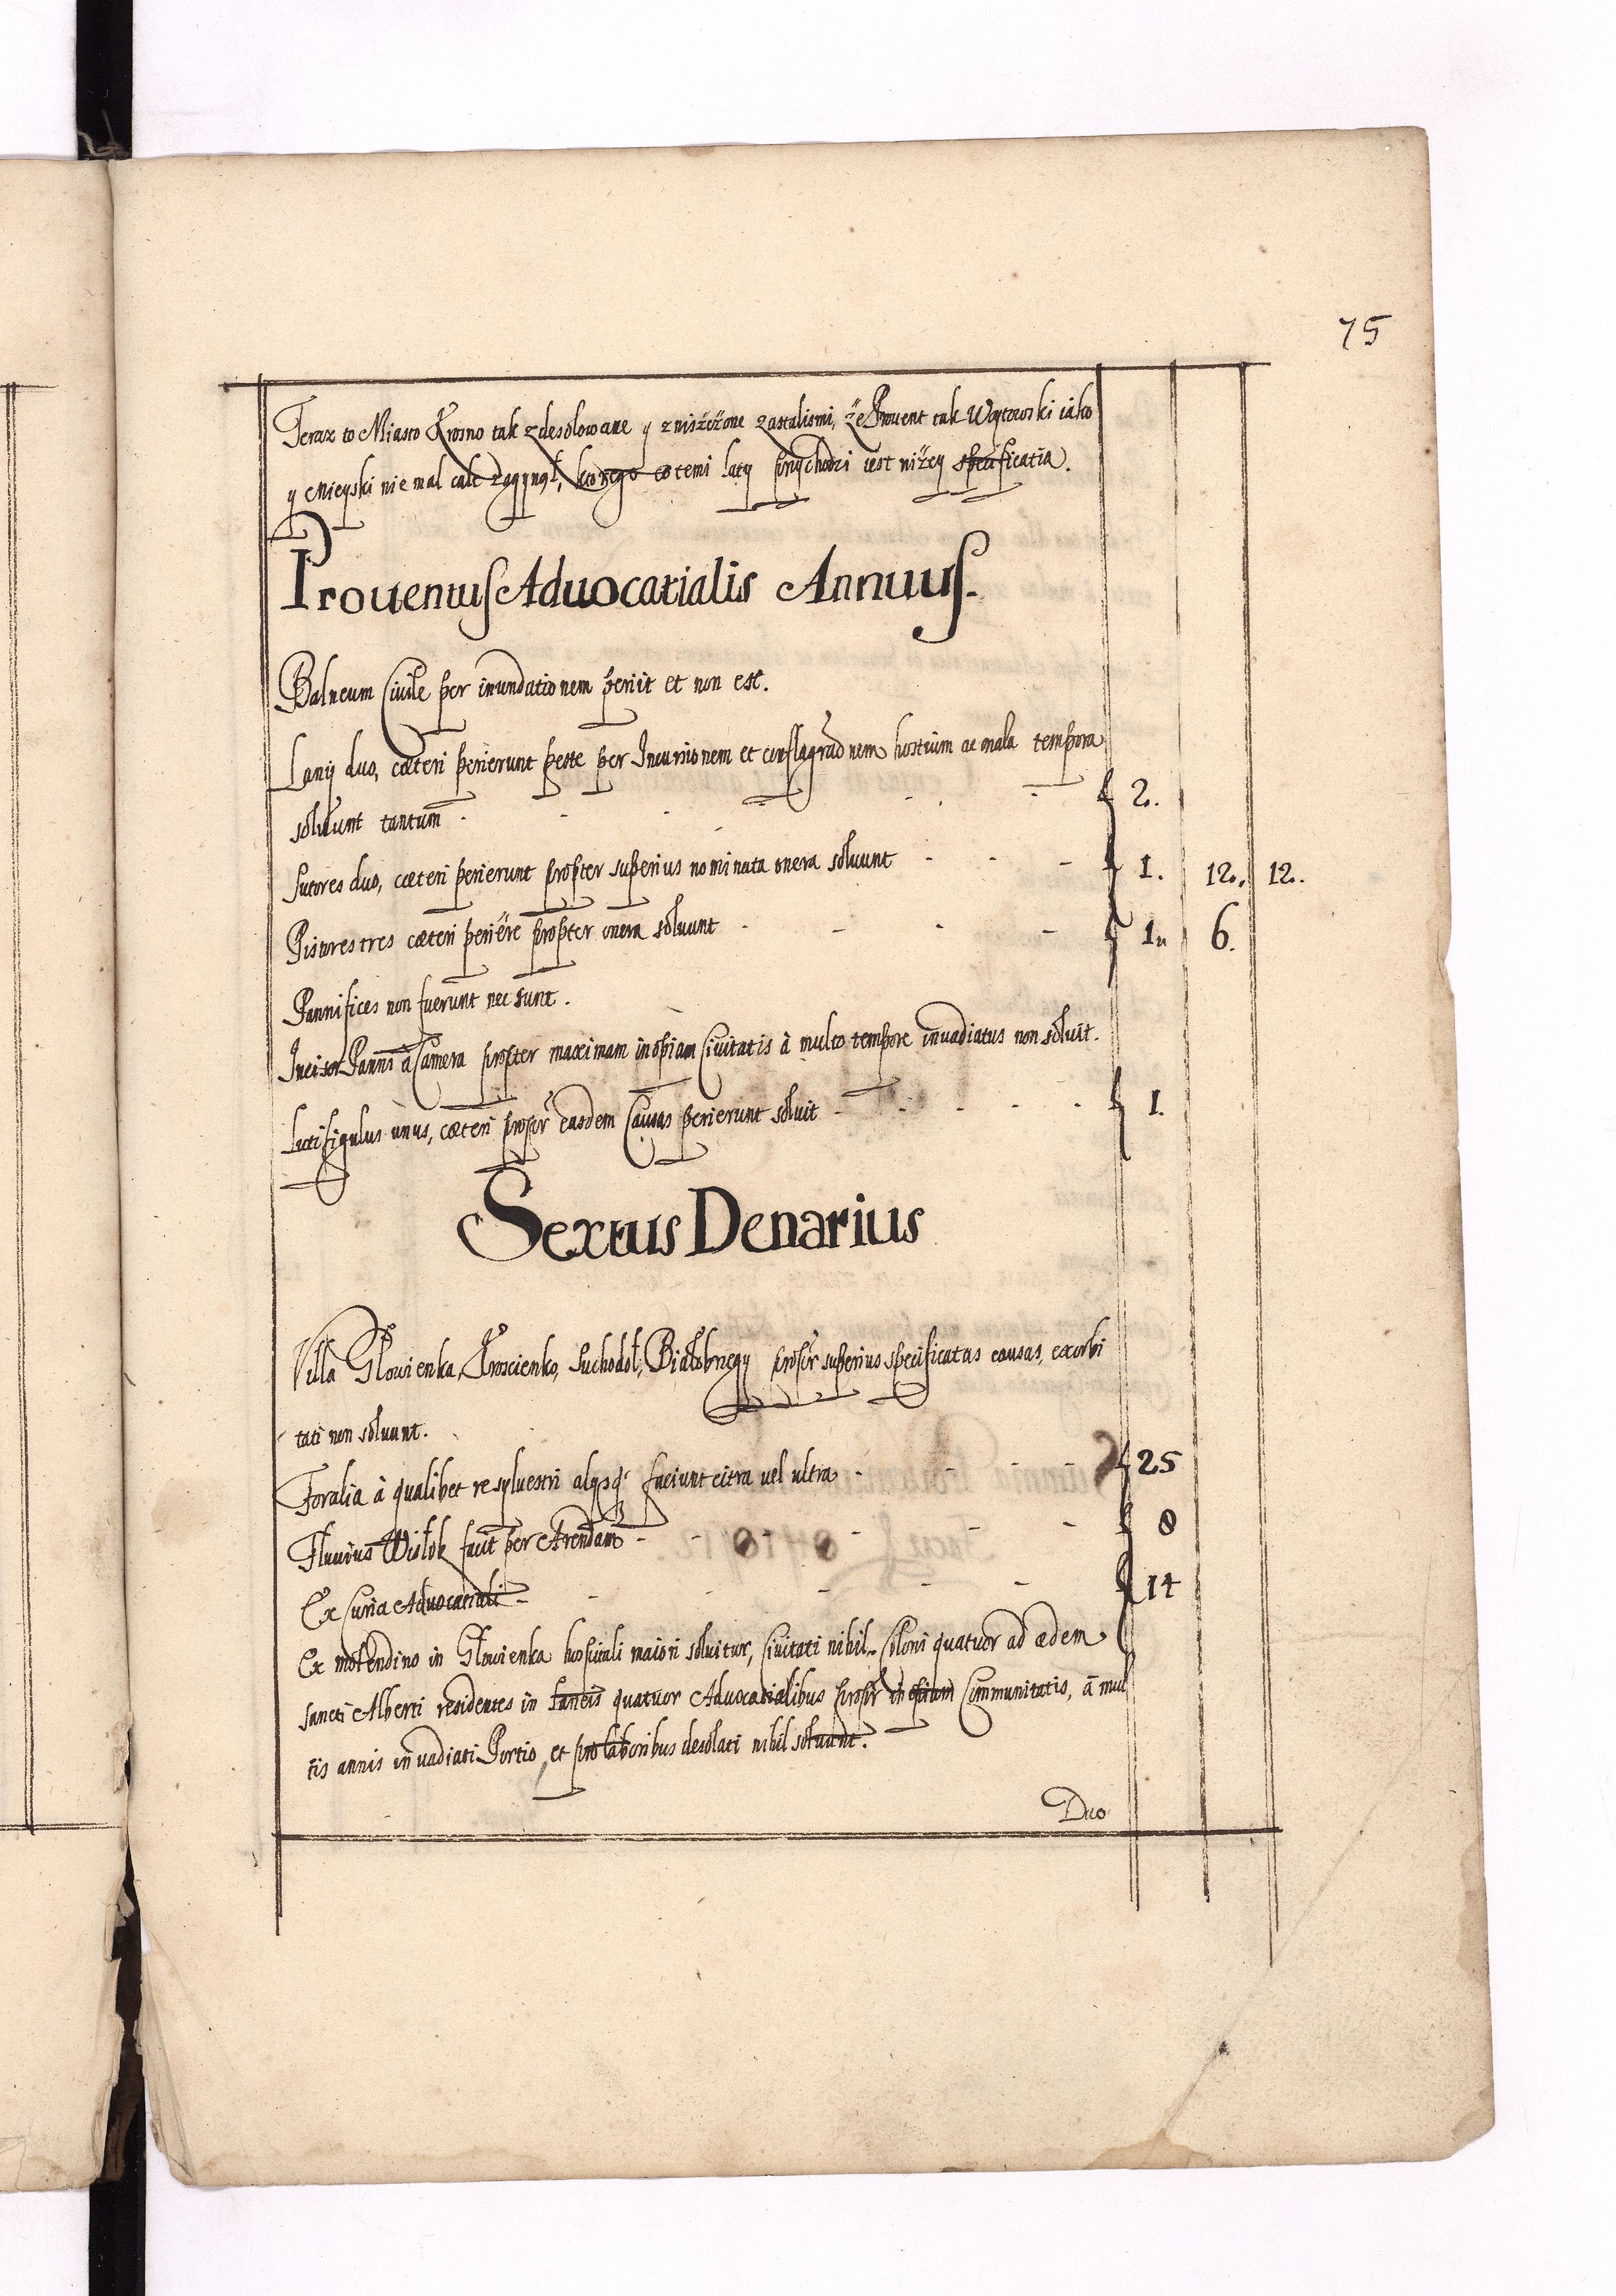 75
Teraz to Miasto Krosno tak zdesolowane y zniszczone zastalismi, że Prouent tak Woytowski iako
y Mieyski nie mal cale zagynął, ktorego co temi laty przychodzi iest niżey specificatia.
Prouentus Aduocatialis Annuus.
Balneum Ciuile per inundationem periit et non est.
Lanij duo, cæteri perierunt peste per Incursionem et conflagraõnem hostium ac mala tempora
soluunt tantum - - - - 2.
Sutores duo, cæteri perierunt propter superius nominata onera soluunt - - - 1. 12. 12.
Pistores tres cæteri periere propter onera soluunt - - - - 1 6.
Pannifices non fuerunt nec sunt.
Incisor Panni à Camera propter maximam inopiam Ciuitatis à multo tempore inuadiatus non soluit.
Lutifigulus unus, cæteri propr easdem Causas perierunt soluit - - - - 1.
Sextus Denarius
Villa Głowienka, Kroscienko, Suchodoł, Białobrzegy propr superius specificatas causas, exorbi
tati non soluunt.
Foralia à qualibet re syluestri alysq; faciunt citra vel ultra - - - 25
Fluuius Wisłok facit per Arendam - - - - 8
Ex Curia Aduocatiali - - - - 14
Ex molendino in Głowienka hospitali maiori soluitur, Ciuitati nihil. Coloni quatuor ad ædem
sancti Alberti residentes in laneis quatuor Aduocatialibus propr inopiam Communitatis, à mul
tis annis inuadiati Portio, et pro laboribus desolati nihil soluunt.
Duo